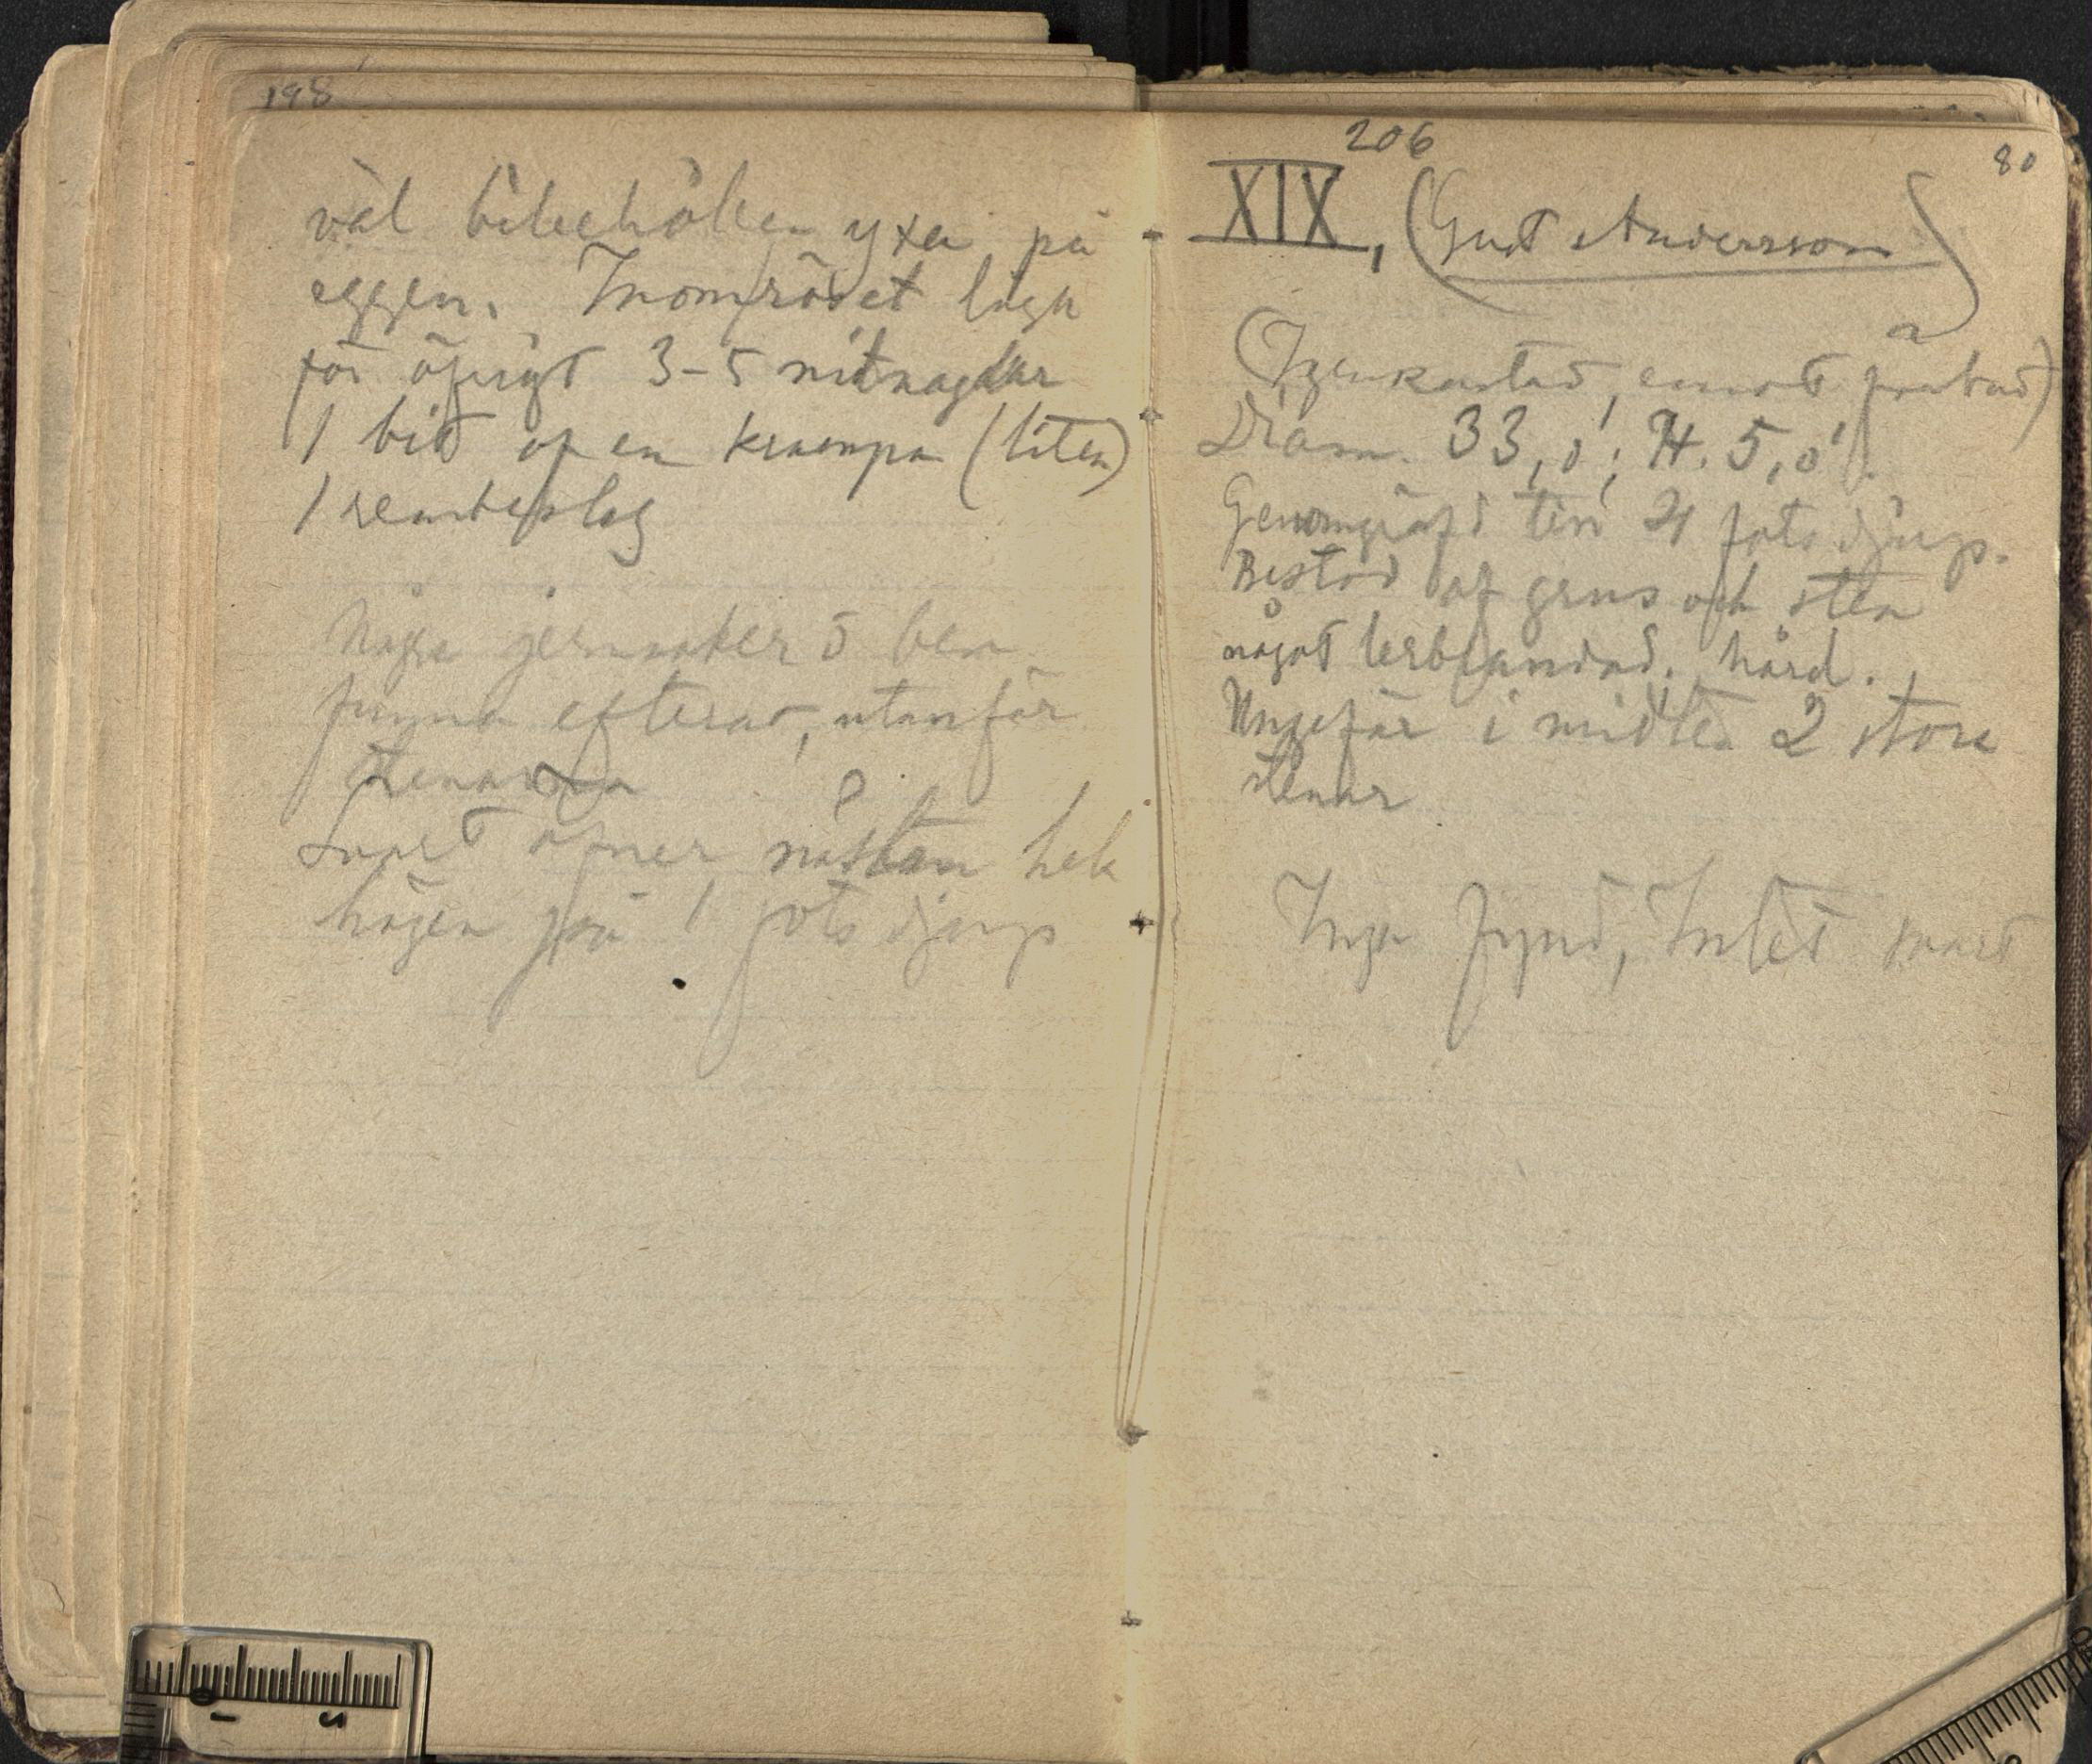 198
väl bibehållen yxa på
eggen. Inområdet låga
för öfrigt 3-5 nitnaglar
1 bit af en krampa (liten)
1 rembeslag
Några jernsaker o ben
funna efteråt, utanför
stenarna
Svart öfver nästan hela
högen på 1 fots djup
206
80
XIX, (Gust Andersson)
(Igenkastad,
Diam. 33,0'; H. 5,0'.
Genomgräfd till 4 fots djup.
Bestod af grus och sten
något lerblandad. hård.
Ungefär i midten 2 stora
stenar
Inga fynd, Intet svart